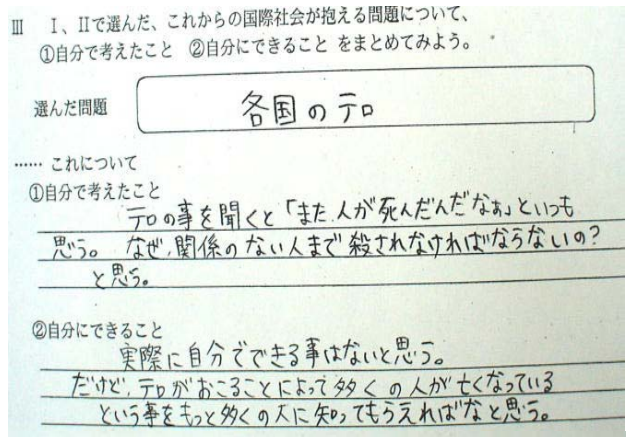 Ⅲ Ⅰ、Ⅱで選んだ、これからの国際社会が抱える問題について、
①自分で考えたこと ②自分にできること をまとめてみよう。
選んだ問題 各国のテロ
…… これについて
①自分で考えたこと
テロの事を聞くと「また人が死んだんだなぁ」といつも
思う。なぜ、関係のない人まで殺されなければならないの?
と思う。
②自分にできること
実際に自分でできる事はないと思う。
だけど、テロがおこることによって多くの人が亡くなっている
という事をもっと多くの人に知ってもらえればなと思う。